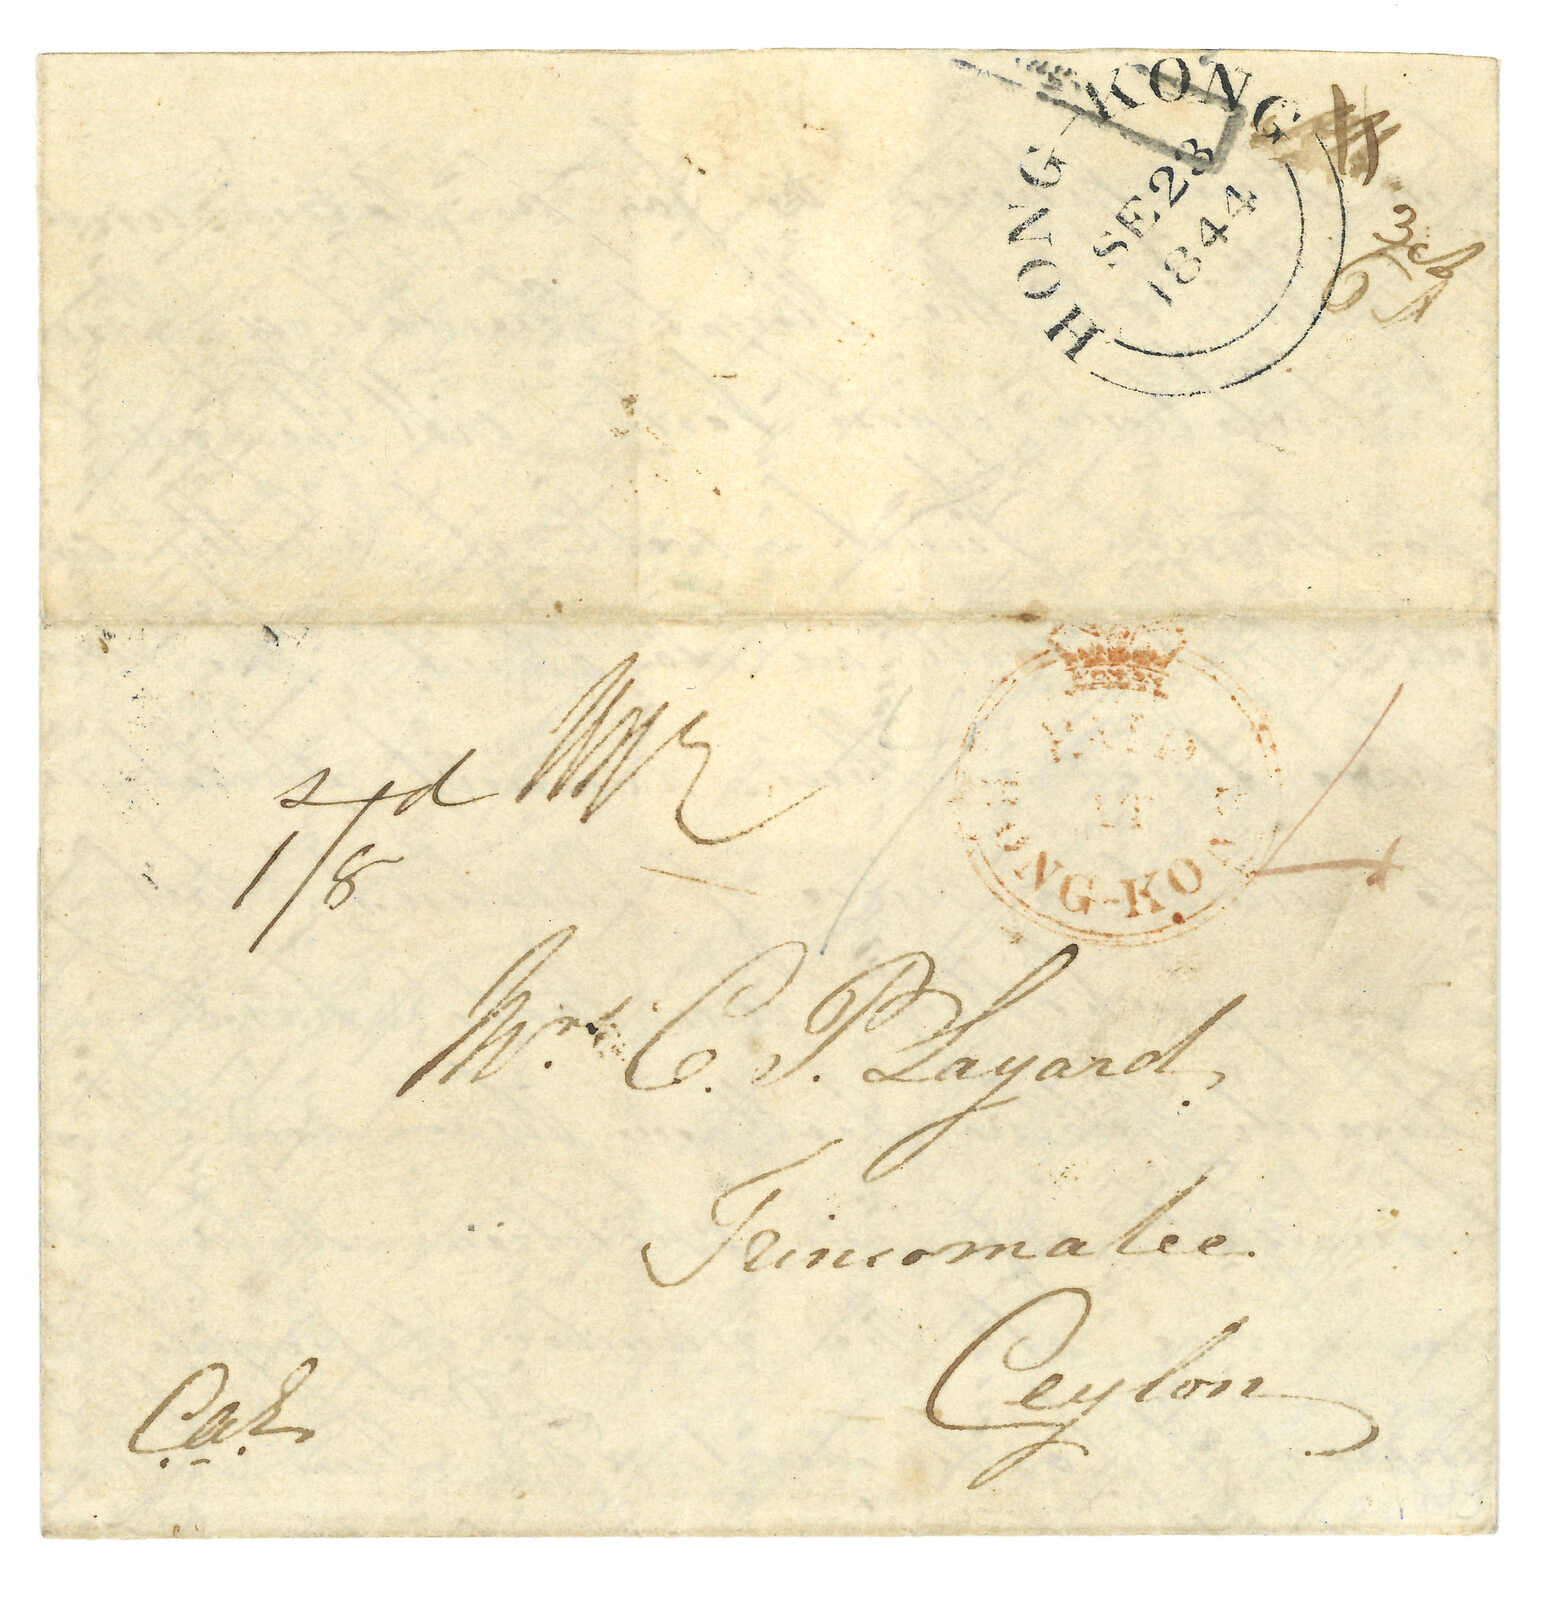 HONG-KONG
SE 23
1844
s d
1/8
PAID
AT
HONG-KONG
Mrs. C. P. Layard.
Trincomalee.
Ceylon